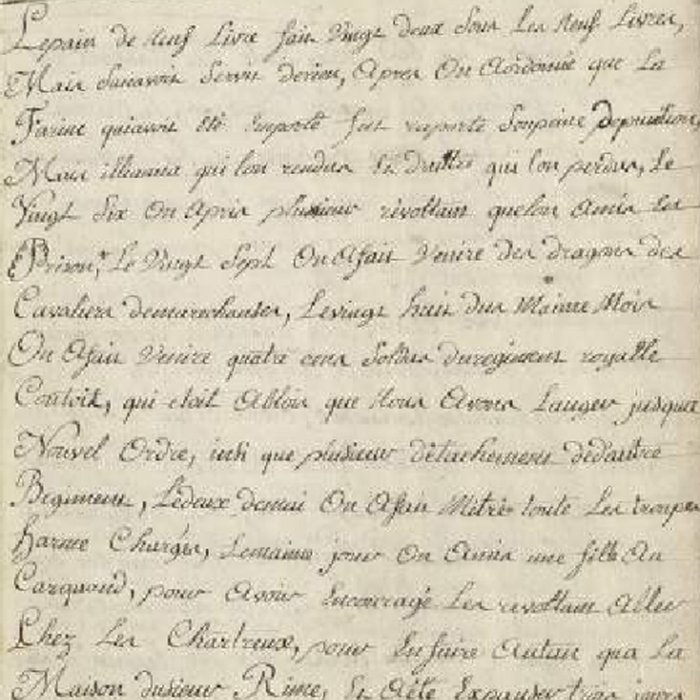 Lepain de neuf Livre fair Vingt deux Sous Les neuf Livres,
Mais Sanavoit Servie derien, Apres On Aordonné que La
Farine quiavoit été Emporté fut raporté Soupaine Depunitions
Mais illiaeua qui lon rendus En Dautre qui lon perdus, Le
Vingt Six On Apris plusieur révoltant quelon Amis En
Prison, Le Vingt Sept On Afait Venire des dragons des
Cavaliers demarechausés, Levingt huit dus Maime Mois
On Afait Venire quatre cens Soldas duregiment royalle
Contoit, qui etoit Abloir que nous Avons Lauger jusquas
Nouvel Ordre, insi que plusieur détachement dedautre
Regiment, Ledeux demai On Afait Métre toute Les troupes
harme Charges, Lemaime jour On Amis une fille Au
Carquand, pour Avoir Encouragé Les revoltant Aller
Chez Les Chartreux, pour Enfaire Autan qua La
Maison dusieur Rime, En Aété Exposer trois jours